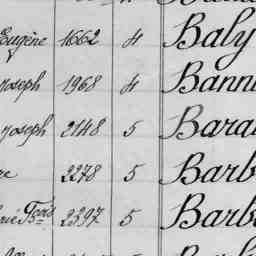 Eugène 1662 4 Baly
Joseph 1968 4 Bann
Joseph 2148 5 Bara
2278 5 Barb
Fçois 2397 5 Barb